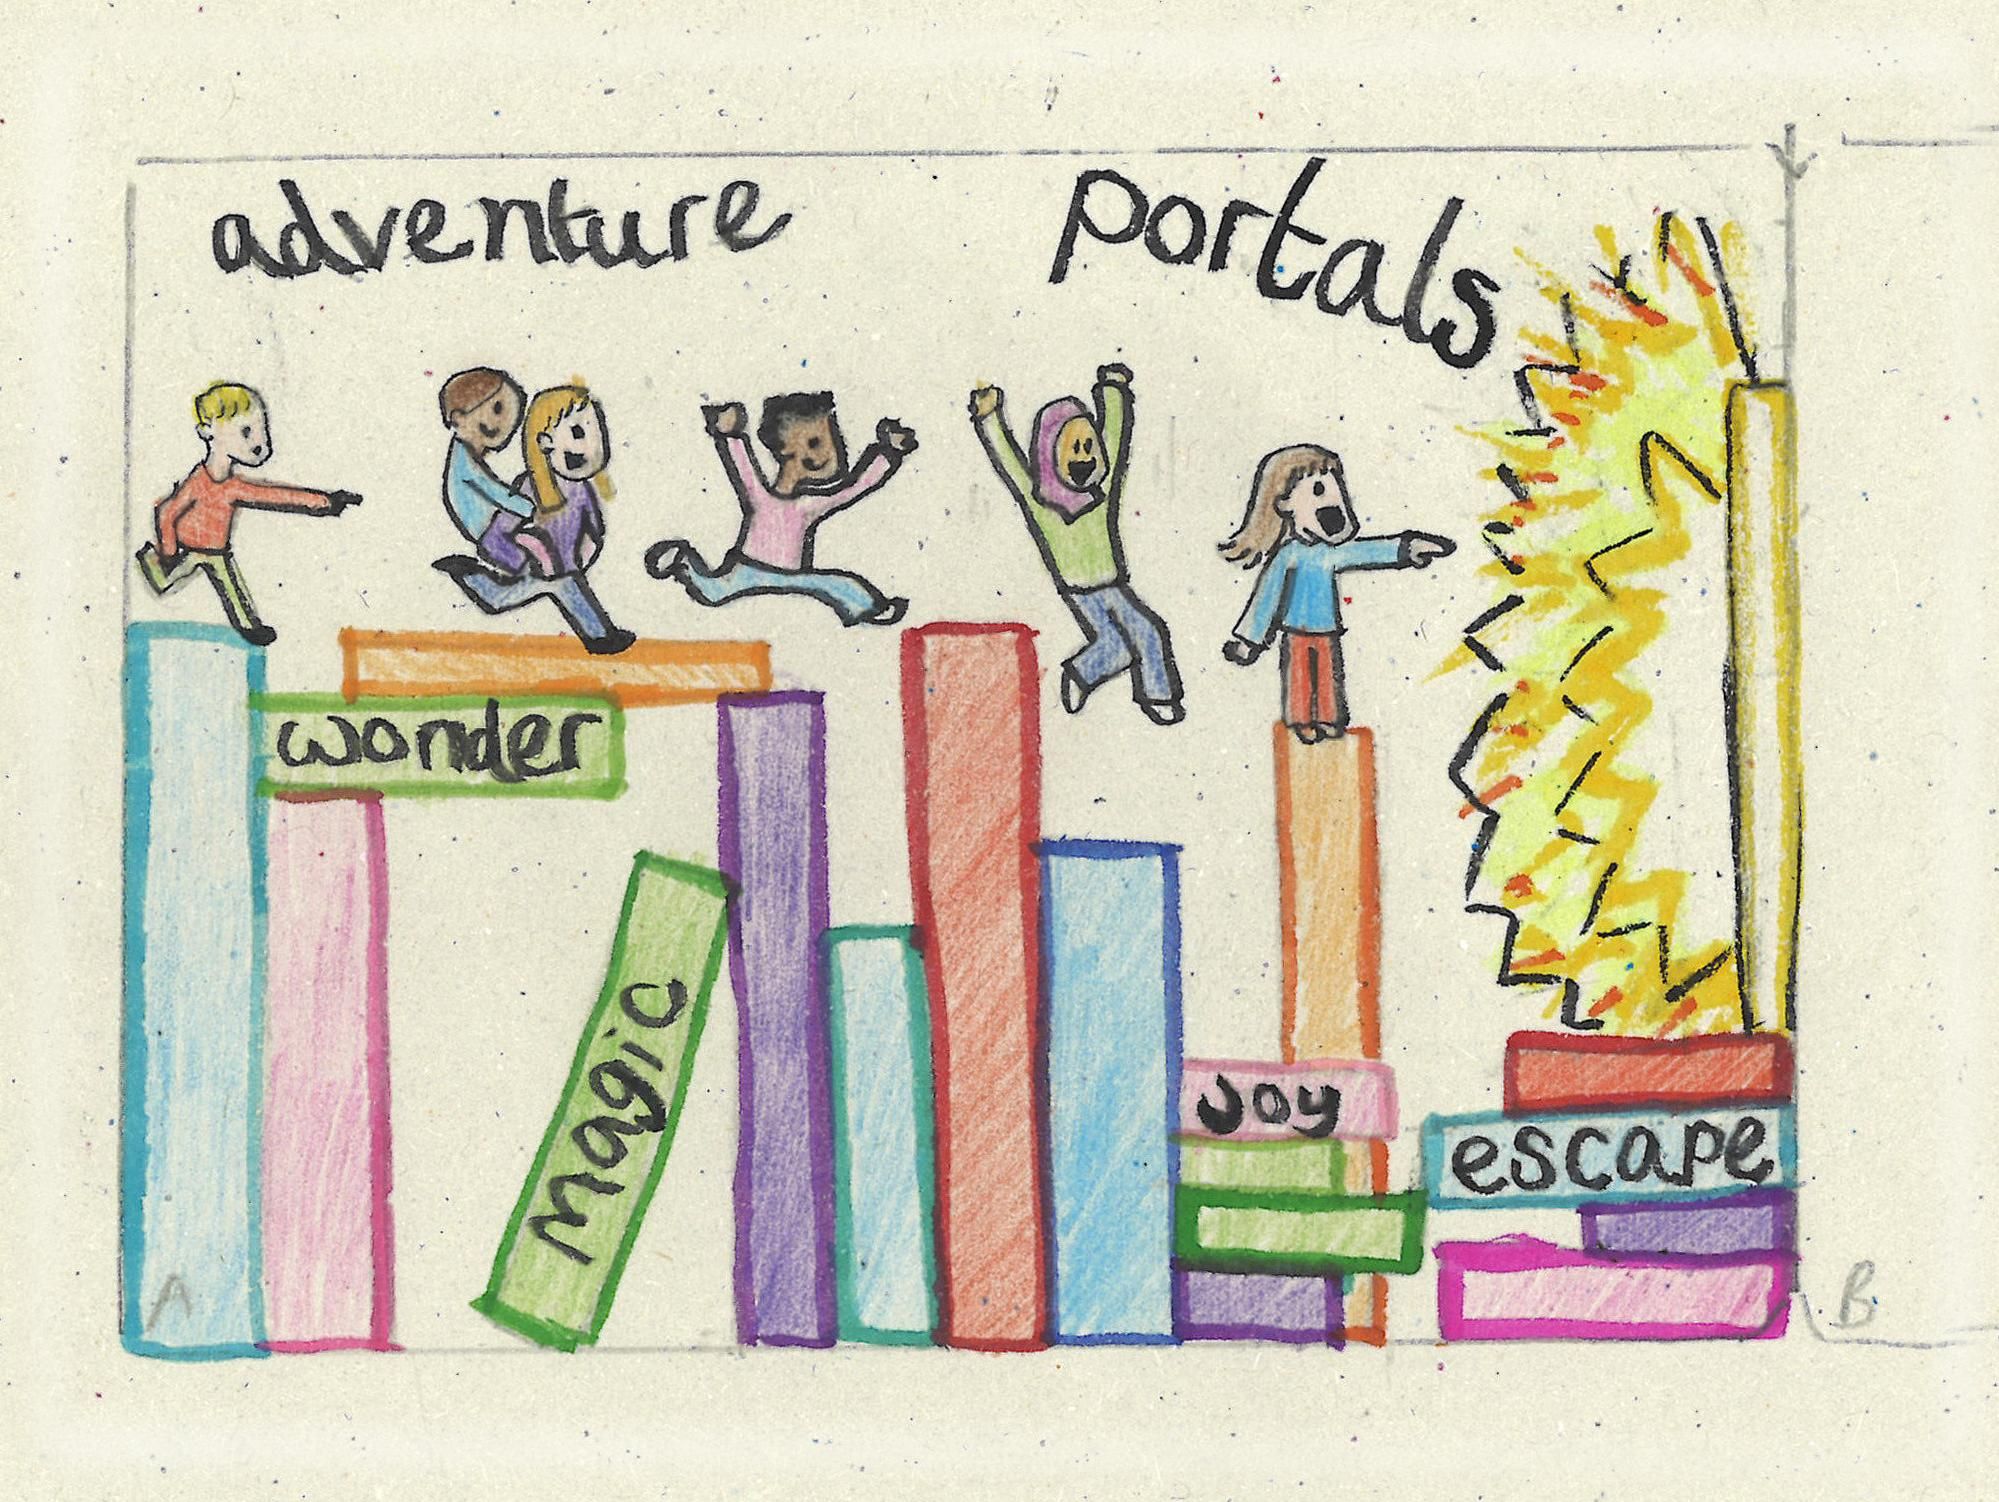 adventure
portals
wonder
magic
Joy
escape
A
B